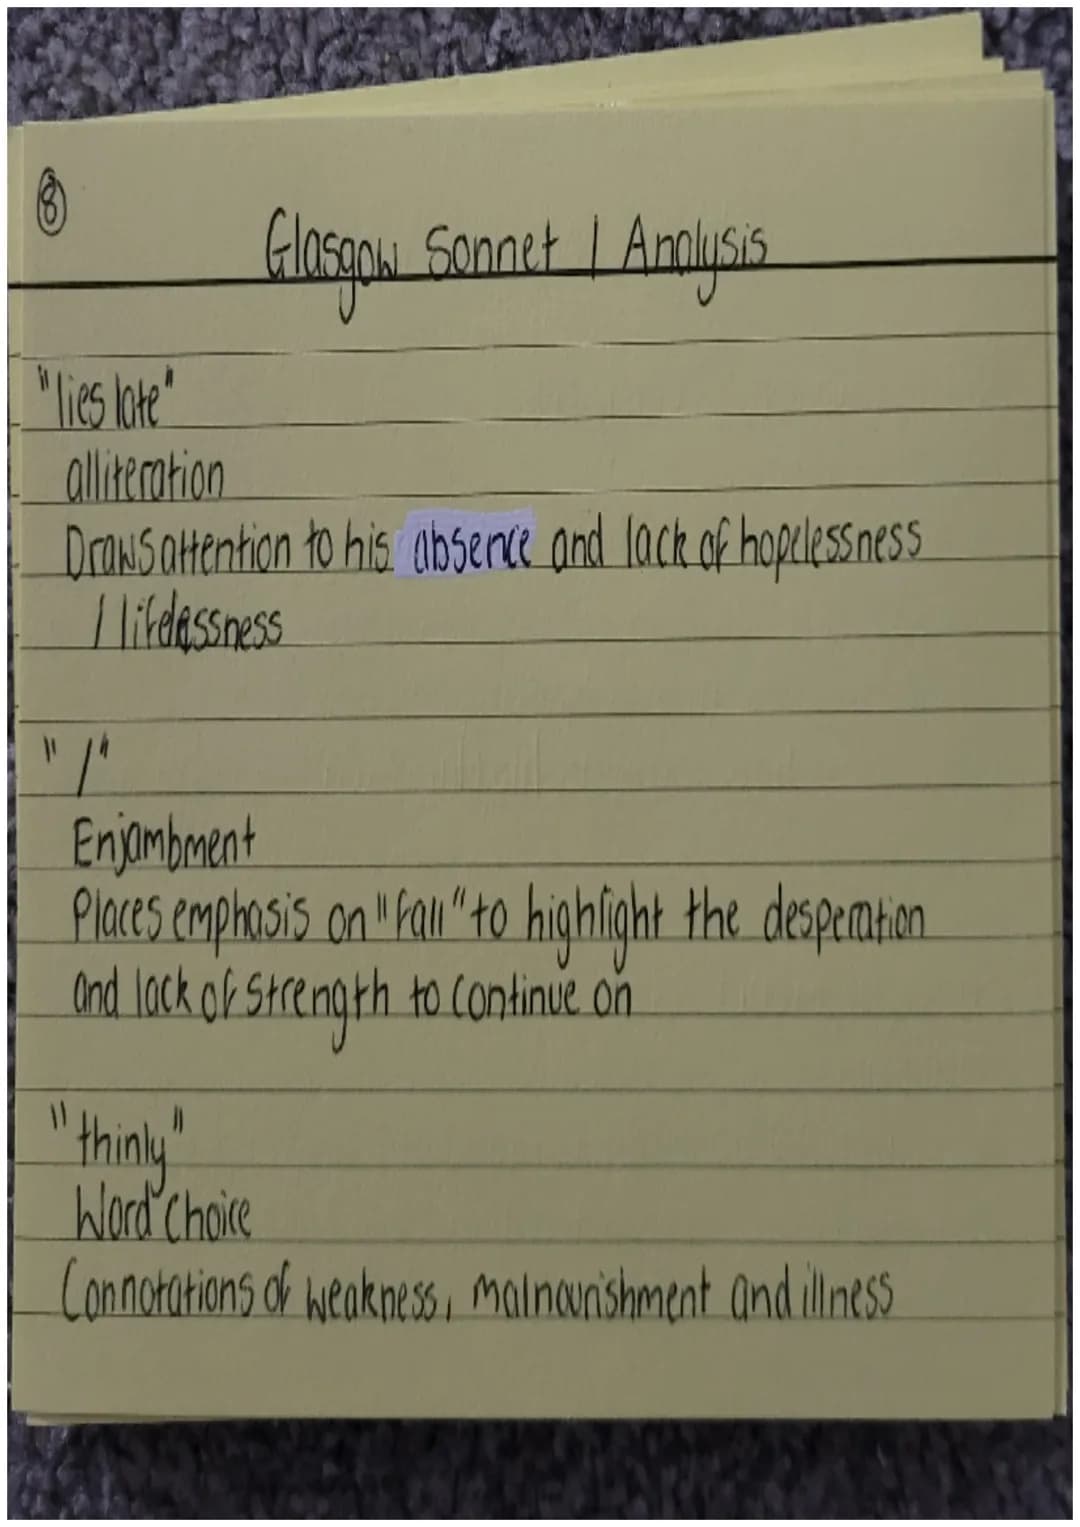 8
Glasgow Sonnet 1 Analysis
"lies late"
alliteration
Draws attention to his absence and lack of hopelessness
/ lifelessness
" /"
Enjambment
Places emphasis on "fall" to highlight the desperation
and lack of strength to continue on
"thinly"
Word Choice
Connotations of weakness, malnourishment and illness